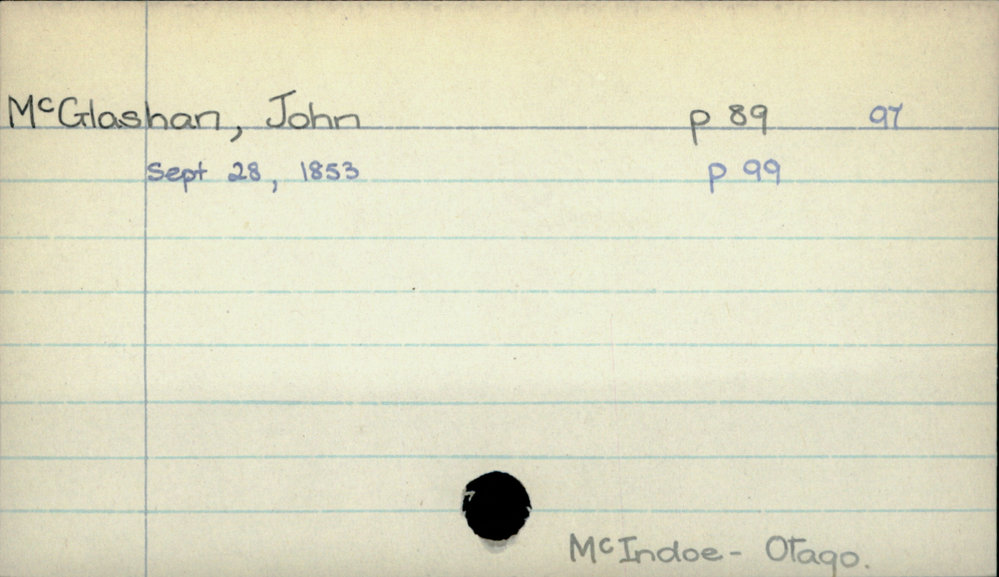 McGlashan, John p 89 97
Sept 28, 1853 p 99
McIndoe - Otago.